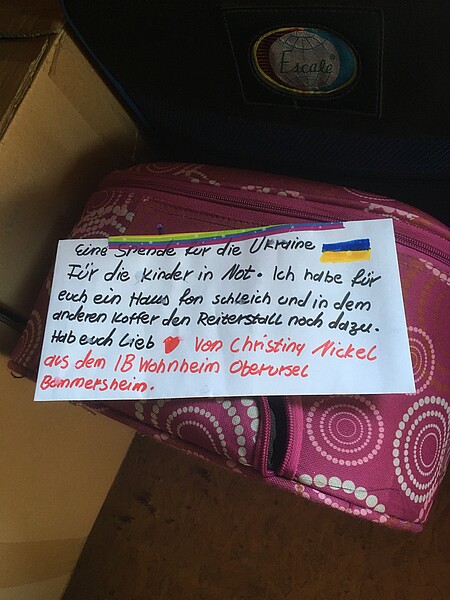 Escale
Eine Spende für die Ukraine
Für die Kinder in Not. Ich habe für
euch ein Haus fon schleich und in dem
anderen Koffer den Reiterstall noch dazu.
Hab euch Lieb ❤ Von Christina Nickel
aus dem IB Wohnheim Oberursel
Bommersheim.